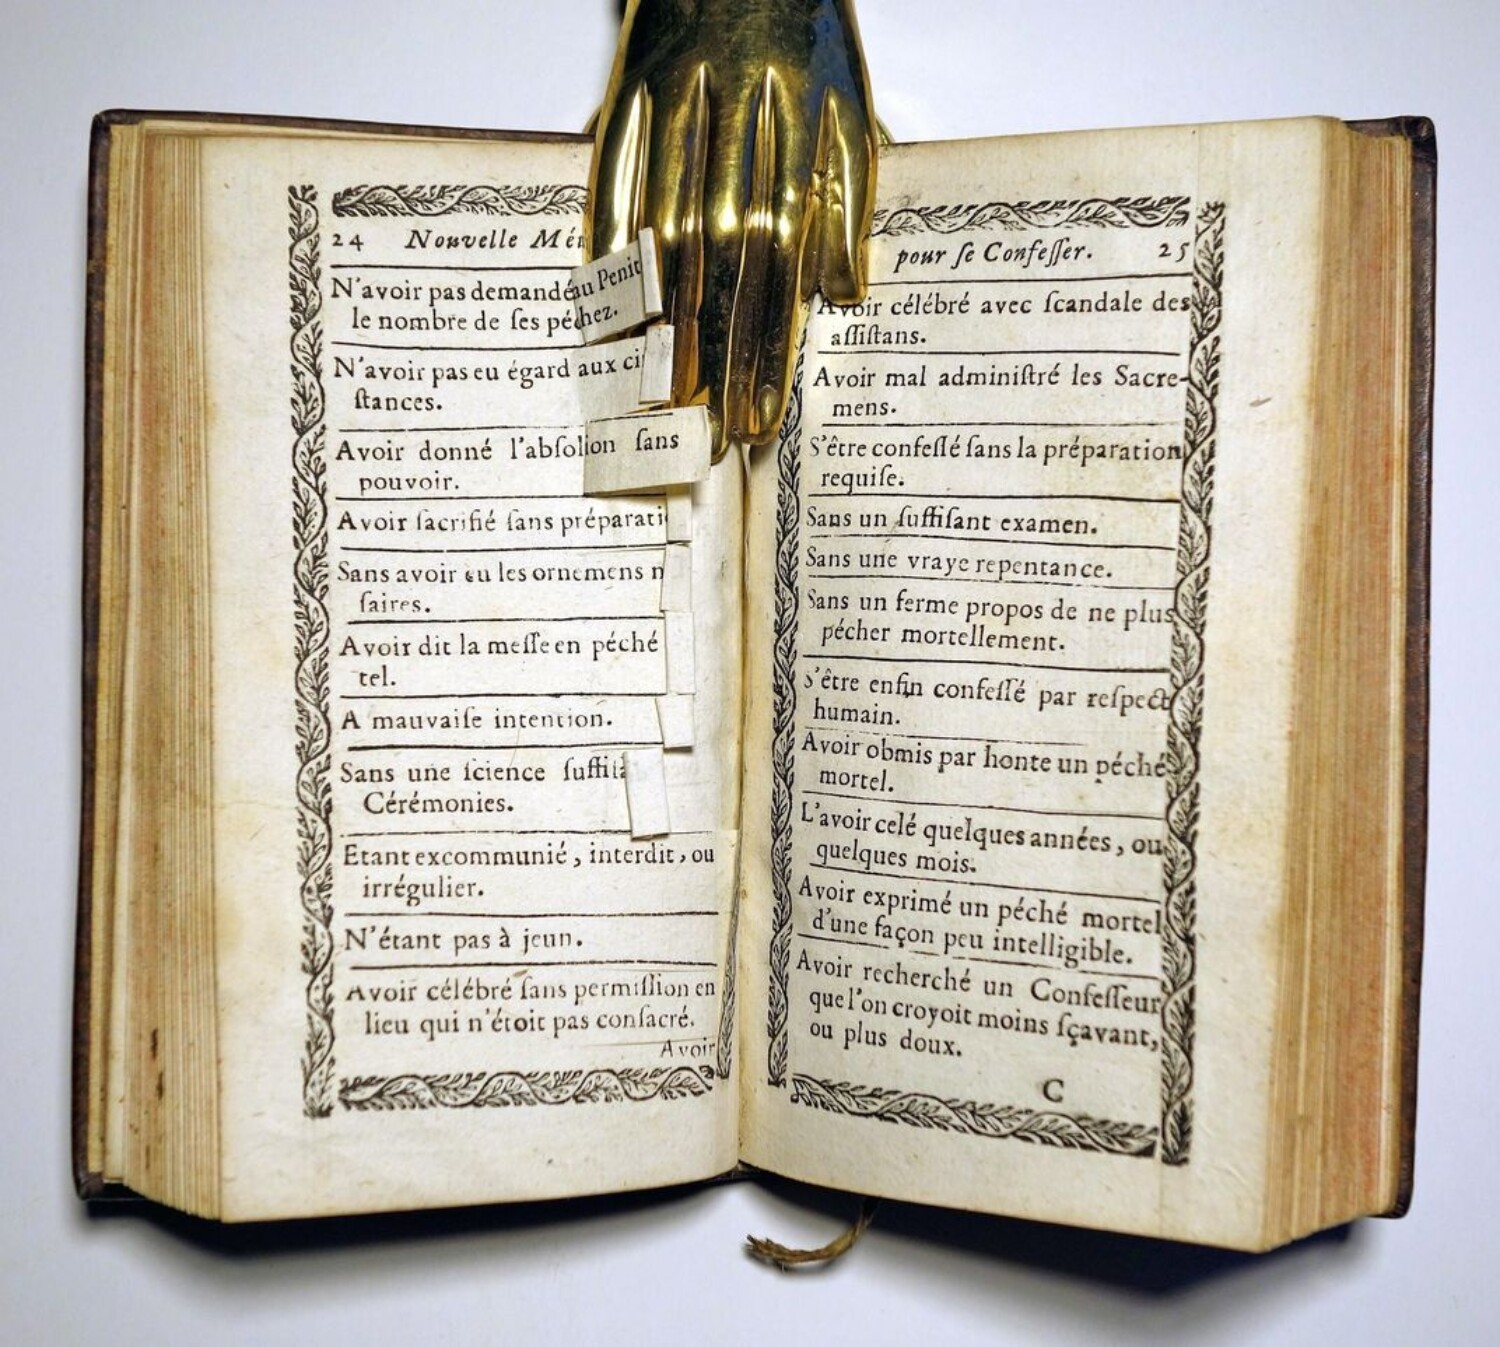 24 Nouvelle
N'avoir pas demandé au Penit
le nombre de ſes péchez.
N'avoir pas eu égard aux
ſtances.
Avoir donné ſans
pouvoir.
Avoir ſacrifié ſans
Sans avoir eu les ornemens
ſaires.
Avoir dit la meſſe en péché
tel.
A mauvaiſe intention.
Sans une ſcience
Cérémonies.
Etant excommunié, interdit, ou
irrégulier.
N'étant pas à jeun.
Avoir célébré ſans permiſſion en
lieu qui n'étoit pas conſacré.
Avoir
pour ſe Confeſſer. 25
Avoir célébré avec ſcandale des
aſſiſtans.
Avoir mal adminiſtré les Sacre-
mens.
S'être confeſſé ſans la préparation
requiſe.
Sans un ſuffiſant examen.
Sans une vraye repentance.
Sans un ferme propos de ne plus
pécher mortellement.
S'être enfin confeſſé par reſpect
humain.
Avoir obmis par honte un péché
mortel.
L'avoir celé quelques années, ou
quelques mois.
Avoir exprimé un péché mortel
d'une façon peu intelligible.
Avoir recherché un Confeſſeur
que l'on croyoit moins ſçavant,
ou plus doux.
C